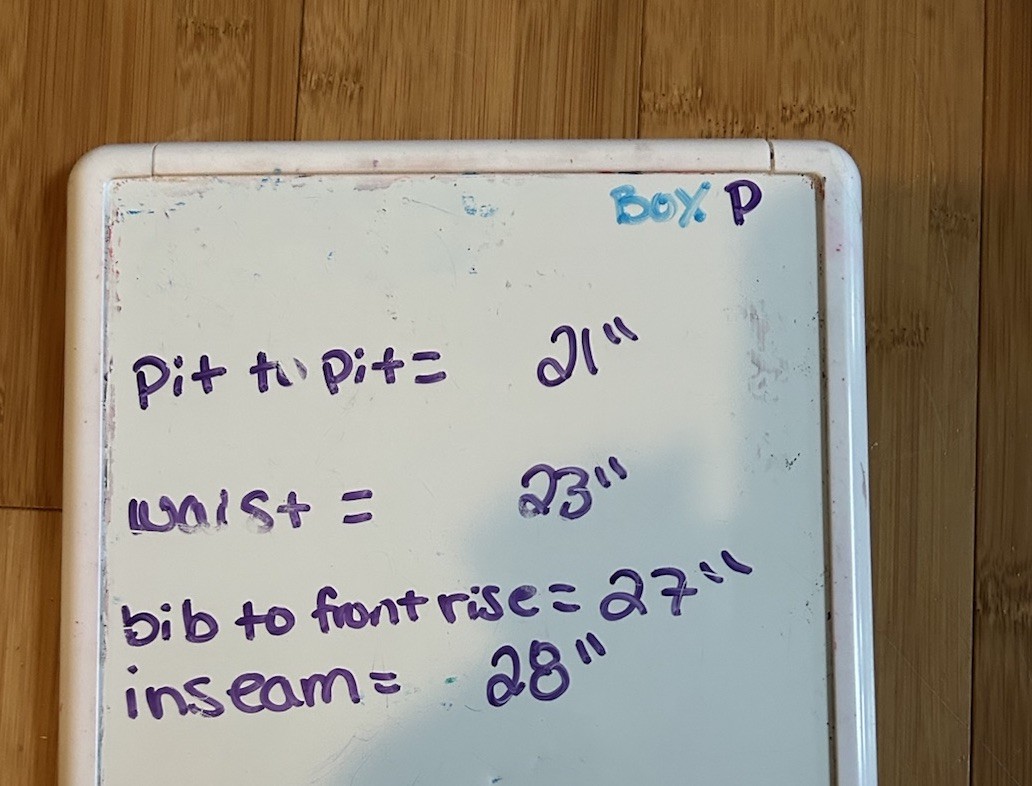 BOX P
Pit to Pit = 21"
waist = 23"
bib to front rise = 27"
inseam = 28"